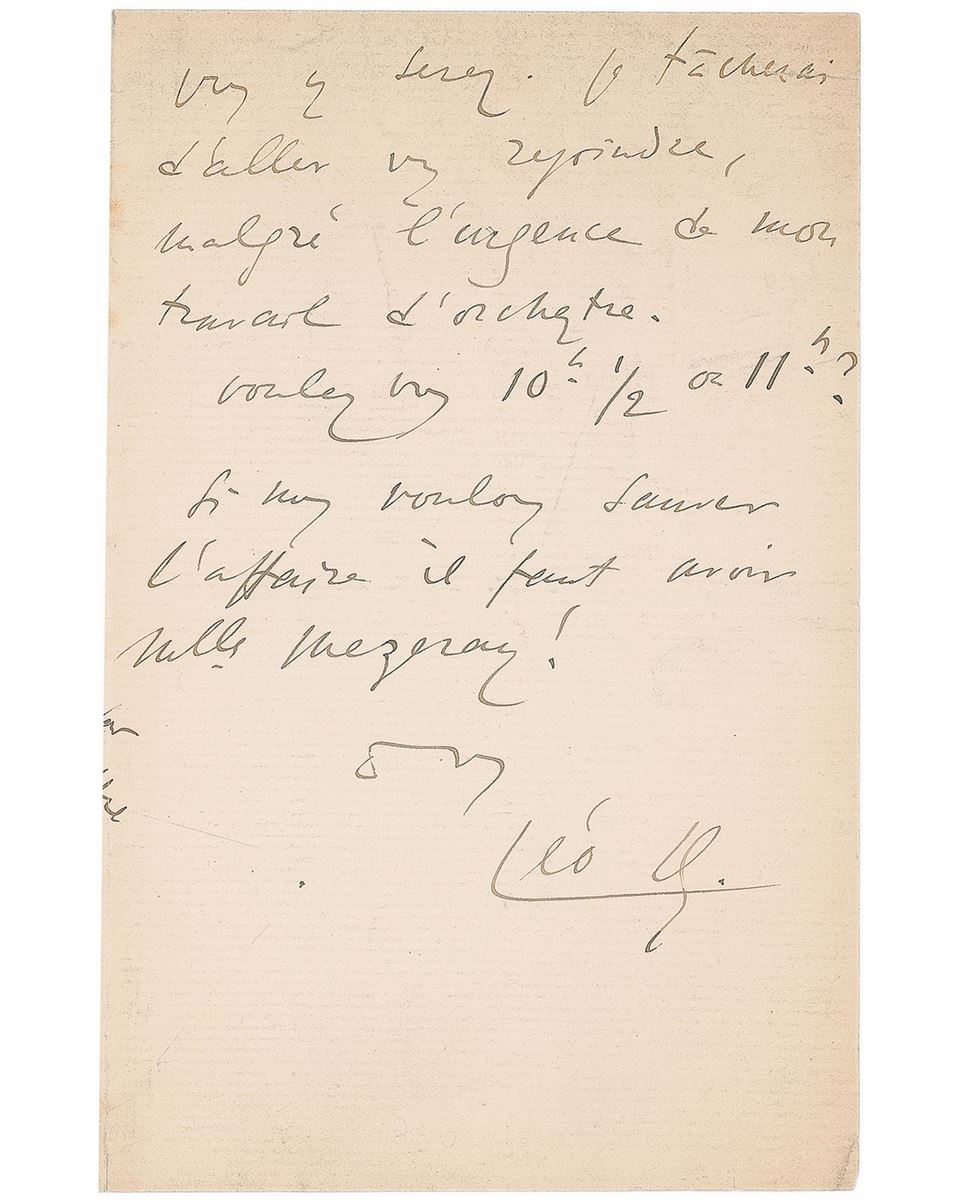 vous y serez. je tâcherai
d'aller vous rejoindre,
malgré l'urgence de mon
travail d'orchestre.
voulez vous 10h. 1/2 ou 11h.?
Si nous voulons sauver
l'affaire il faut avoir
Mlle Mezeray!
à vous
Léo D.